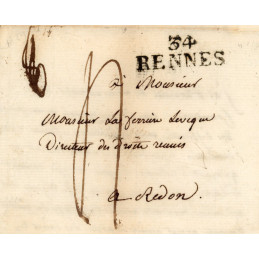 34
RENNES
à Monsieur
Monsieur La ferriere Leveque
Directeur des droits reunis
a Redon.